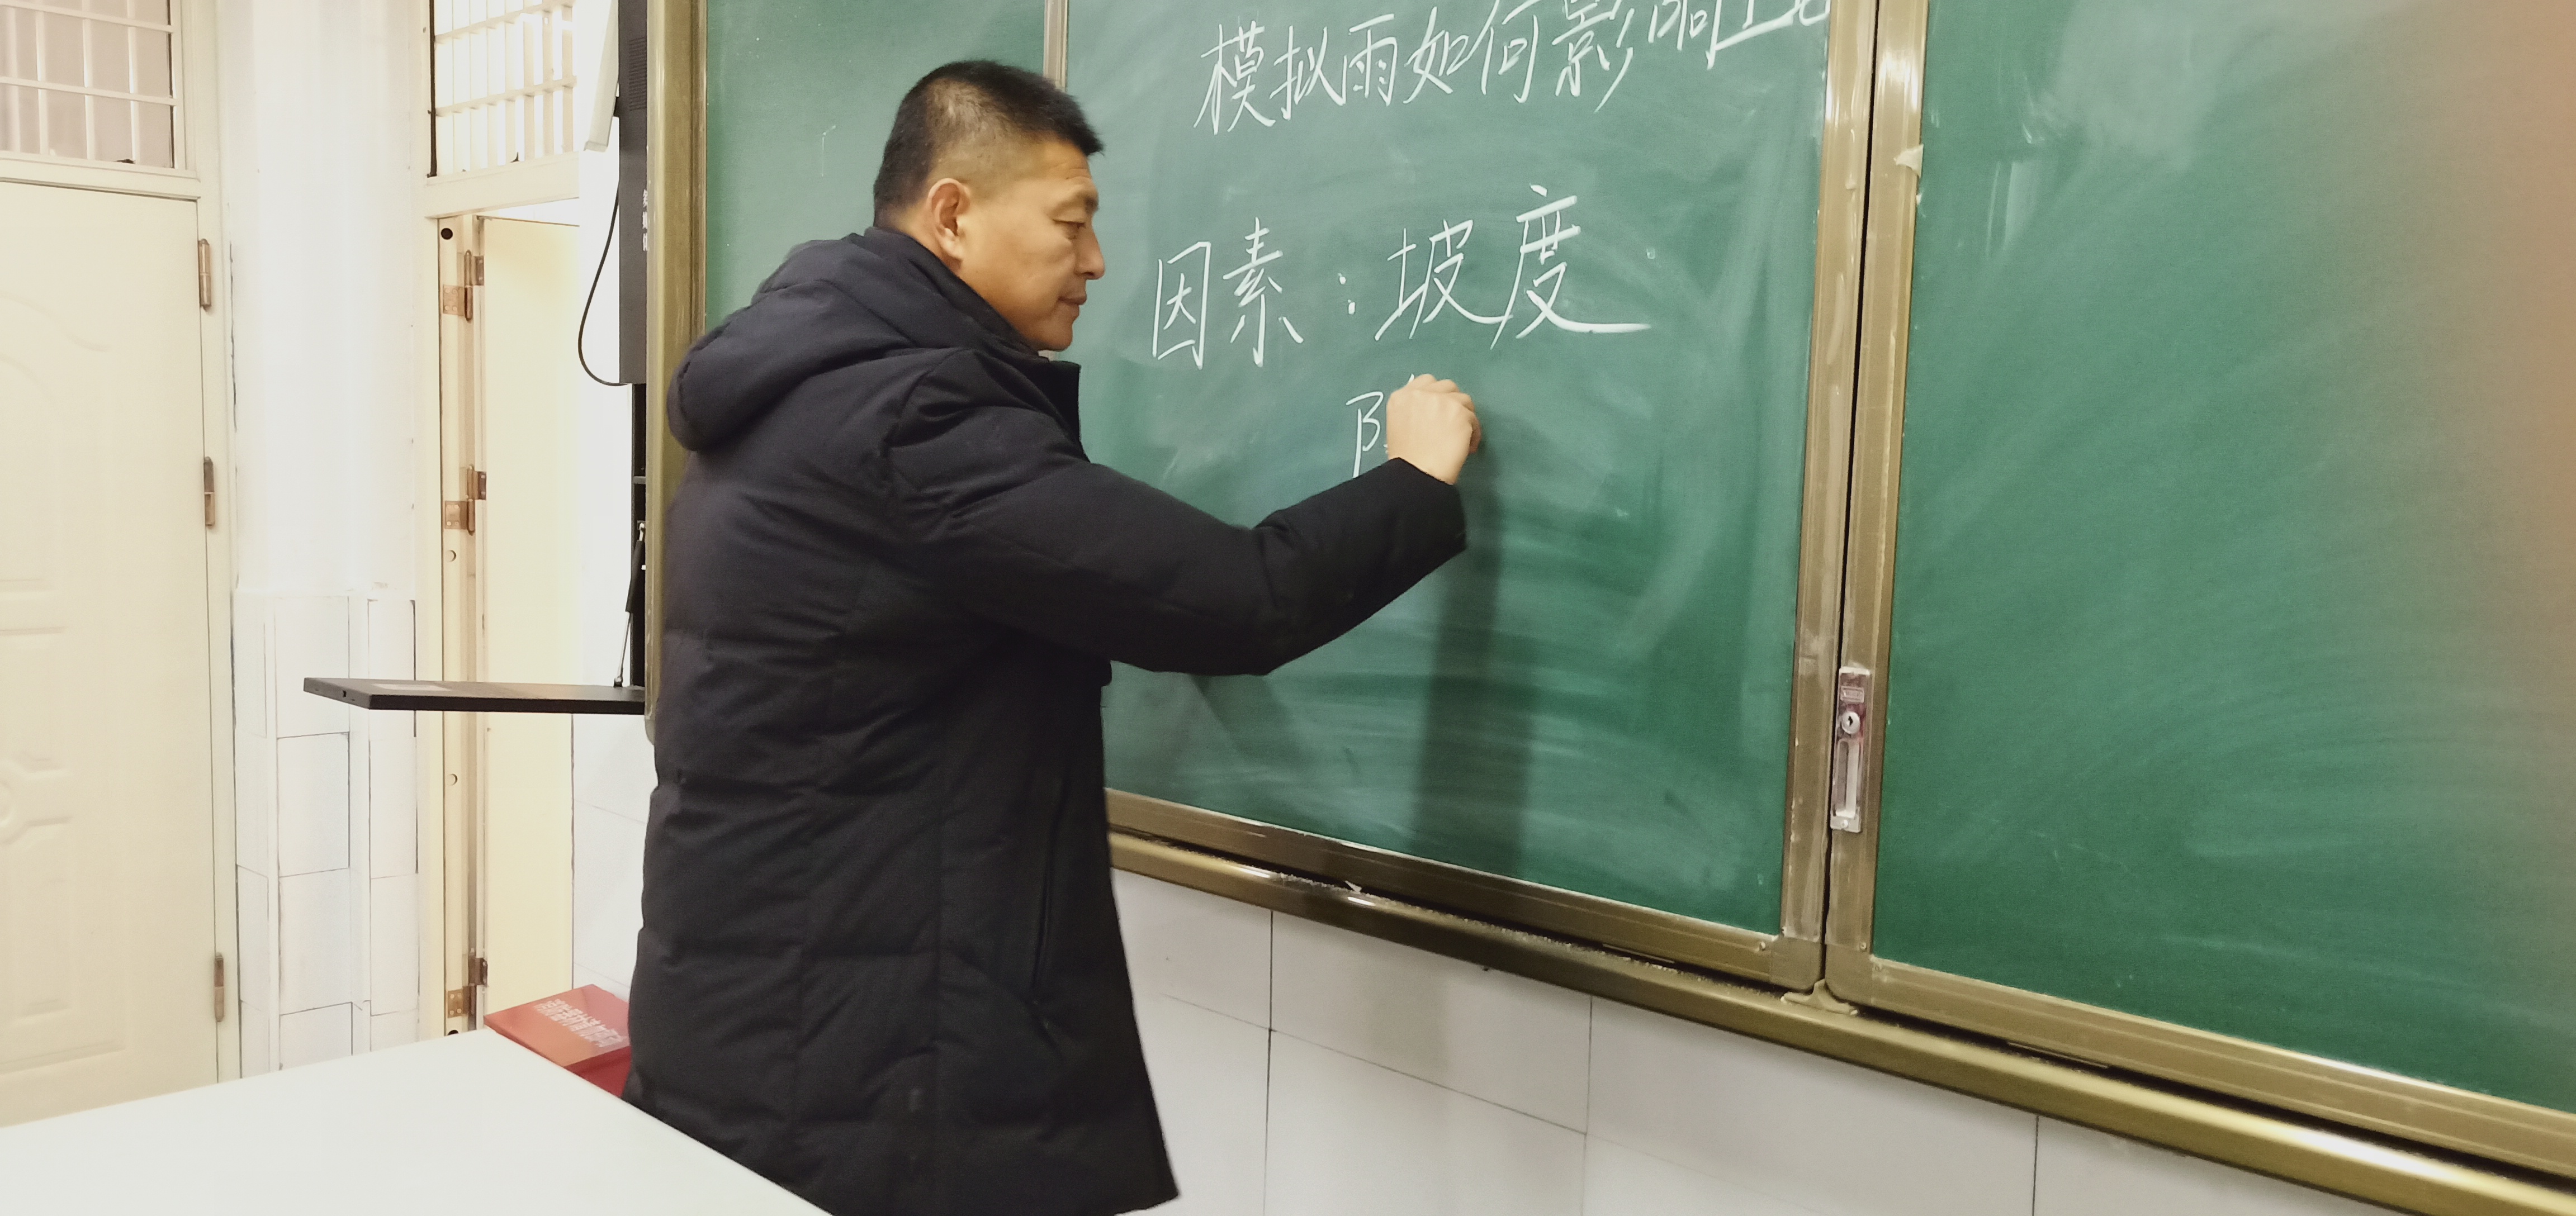 模拟雨如何影响土
因素：坡度
阝